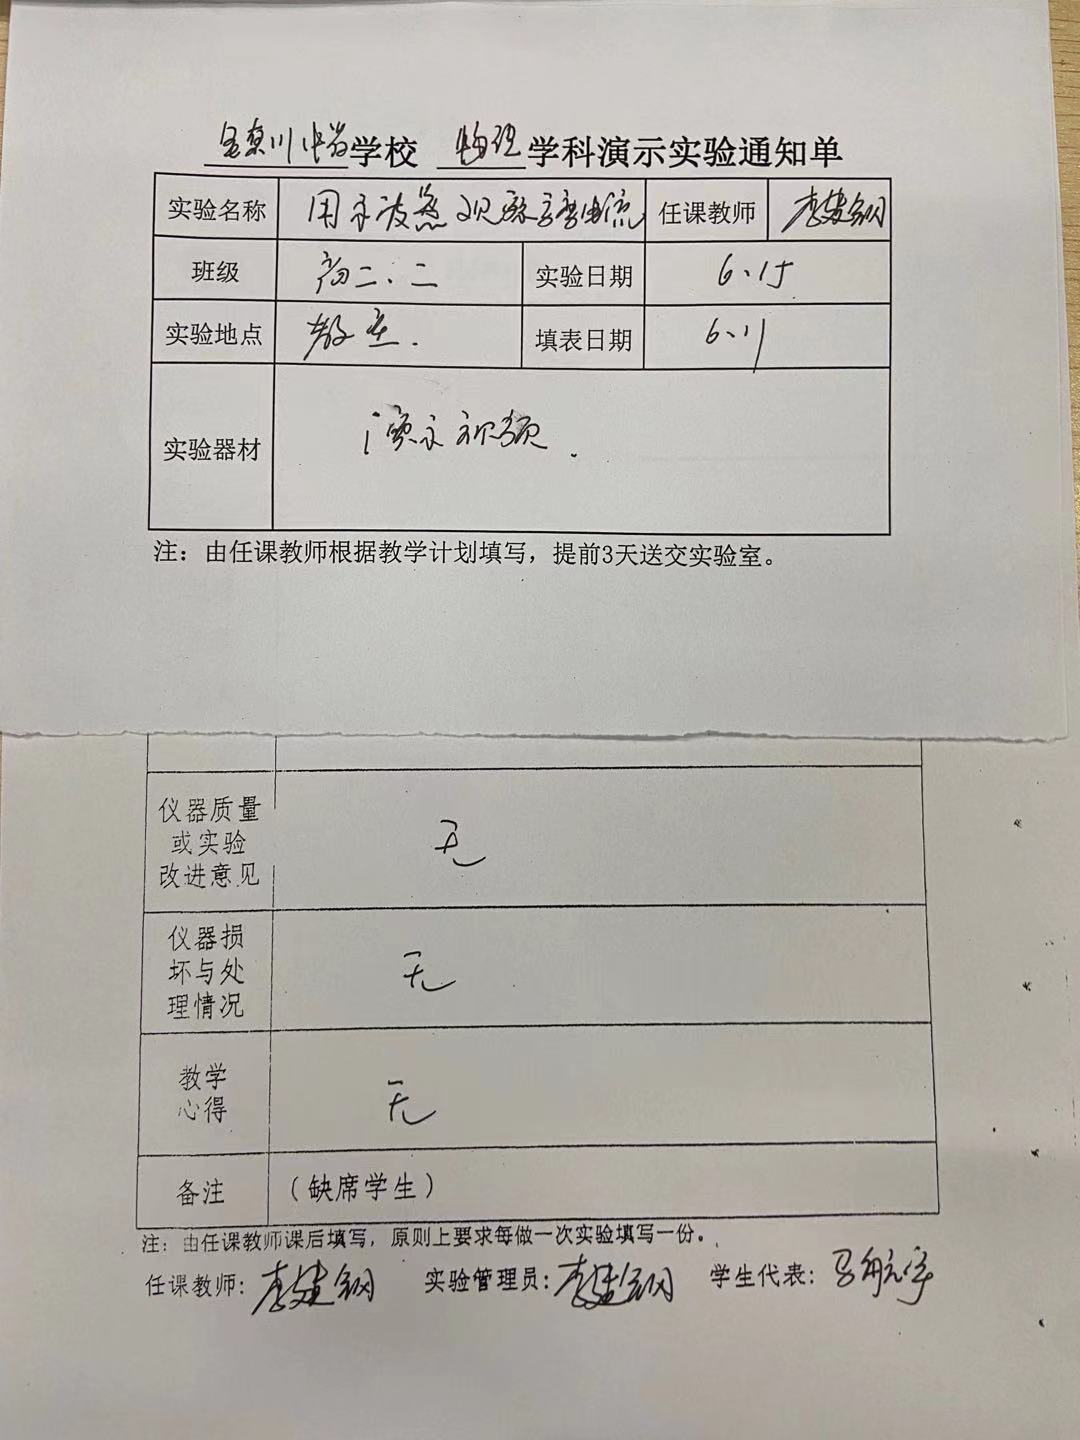 学校 物理 学科演示实验通知单
实验名称 用示波器观察交变电流 任课教师 李建钢
班级 初二.二 实验日期 6.15
实验地点 教室. 填表日期 6.11
实验器材 演示视频.
注：由任课教师根据教学计划填写，提前3天送交实验室。
仪器质量
或实验
改进意见
无
仪器损
坏与处
理情况
无
教学
心得
无
备注 （缺席学生）
注：由任课教师课后填写，原则上要求每做一次实验填写一份。
任课教师：李建钢 实验管理员：李建钢 学生代表：马航宇